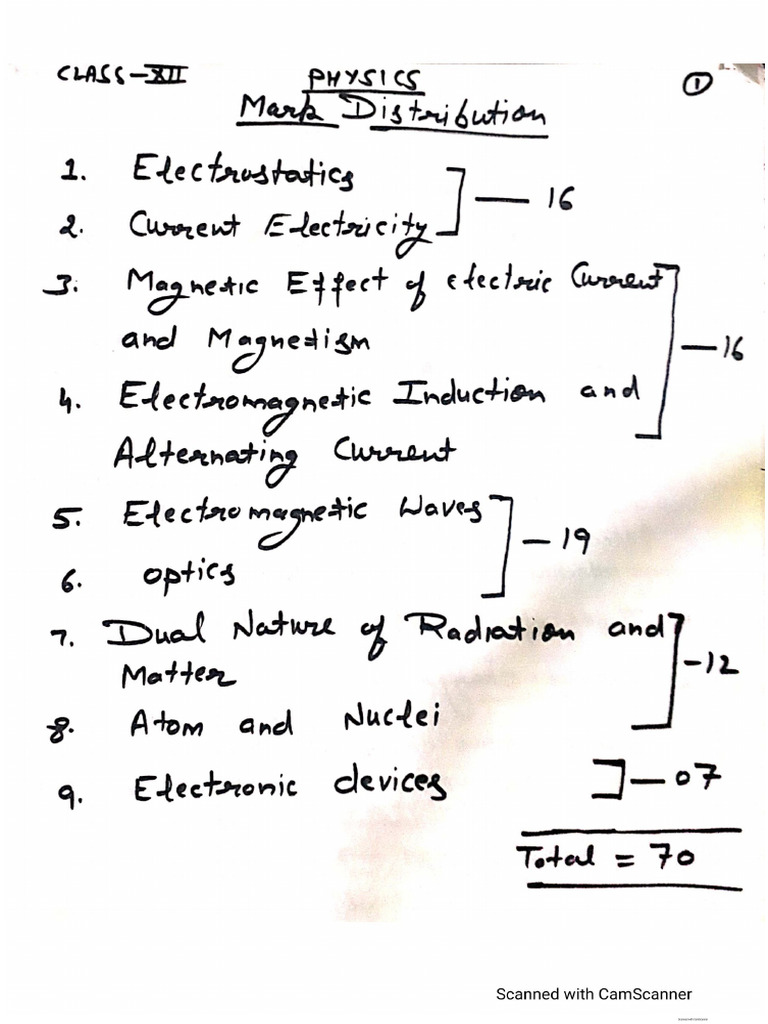 CLASS-XII
PHYSICS
①
Mark Distribution
1. Electrostatics
2. Current Electricity
— 16
3. Magnetic Effect of electric Current
and Magnetism
4. Electromagnetic Induction and
Alternating Current
— 16
5. Electromagnetic Waves
6. optics
— 19
7. Dual Nature of Radiation and
Matter
8. Atom and Nuclei
— 12
9. Electronic devices
— 07
Total = 70
Scanned with CamScanner